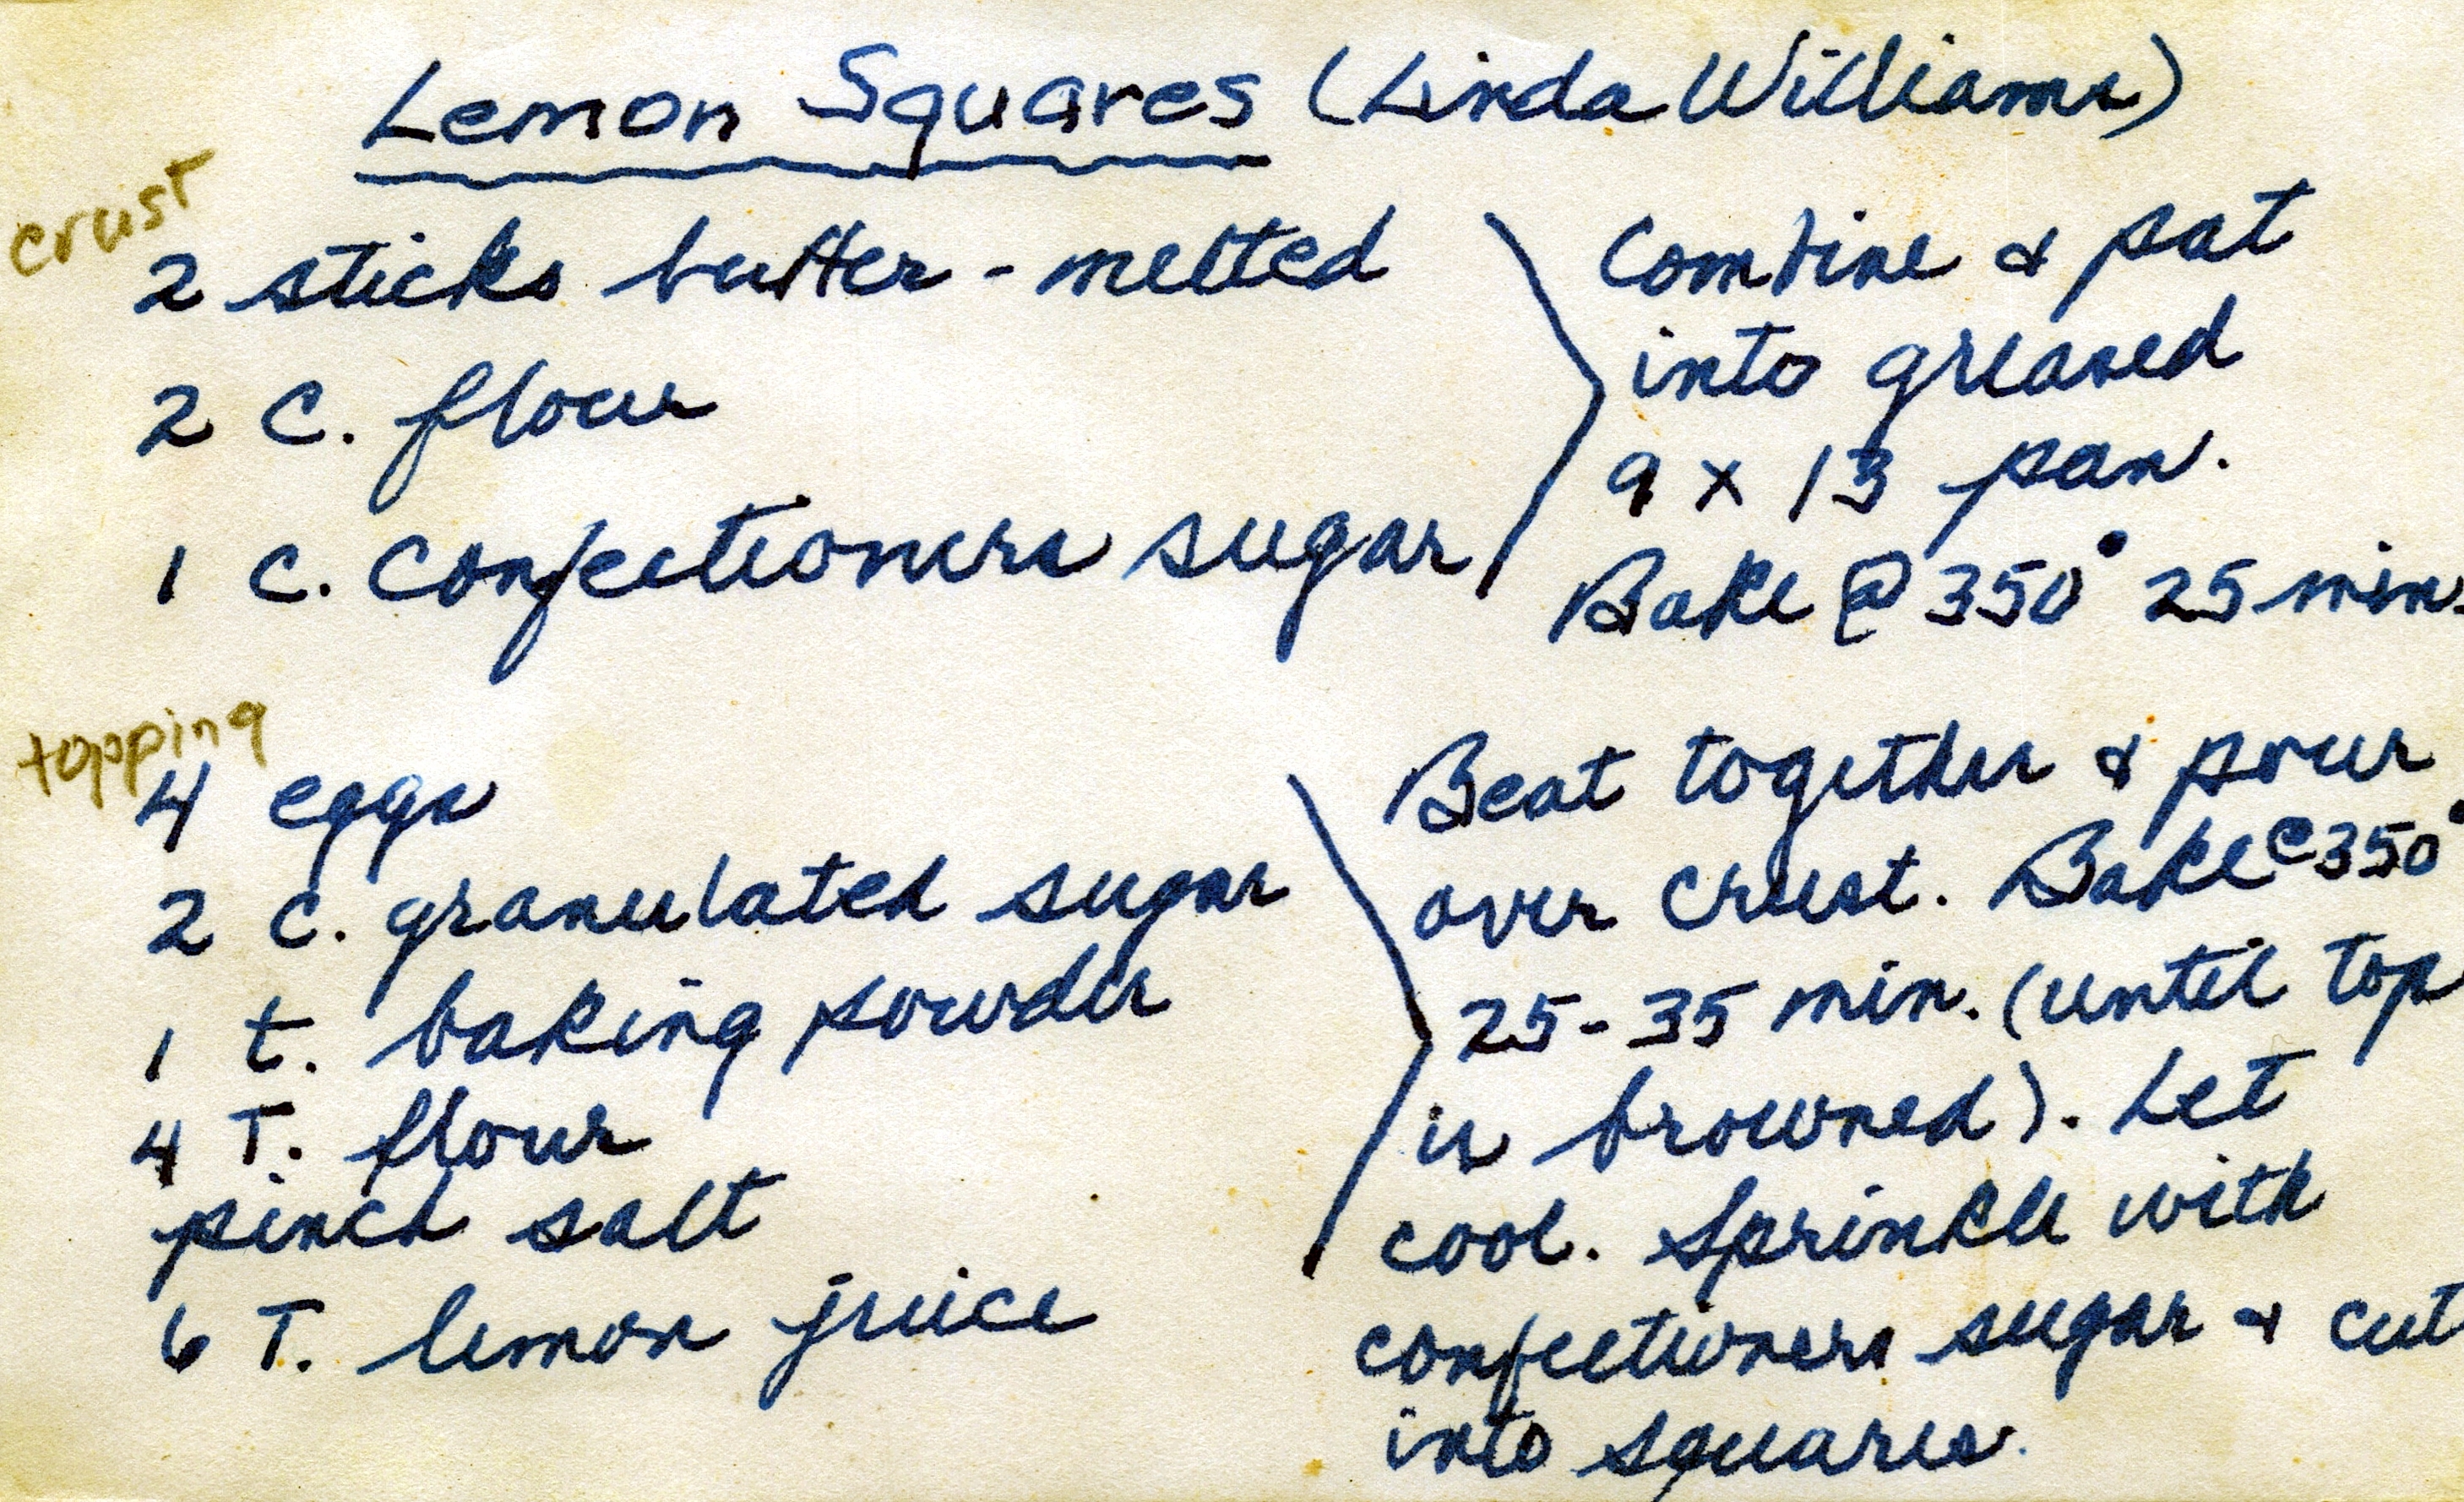 Lemon Squares (Linda Williams)
crust
2 sticks butter - melted
2 C. flour
1 C. Confectioners sugar
Combine & pat
into greased
9 x 13 pan.
Bake @ 350° 25 min.
topping
4 eggs
2 C. granulated sugar
1 t. baking powder
4 T. flour
pinch salt
6 T. lemon juice
Beat together & pour
over crust. Bake @ 350°
25-35 min. (until top
is browned). Let
cool. Sprinkle with
confectioners sugar & cut
into squares.